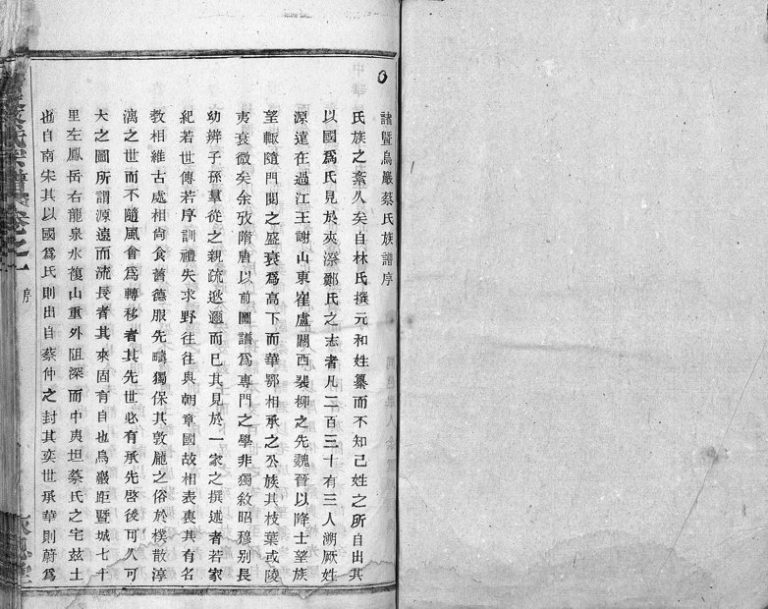 諸暨烏巖蔡氏族譜序
氏族之紊久矣自林氏撰元和姓纂而不知己姓之所自出其
以國爲氏見於夾漈鄭氏之志者凡二百三十有三人溯厥姓
源遠在過江王謝山東崔盧關西裴柳之先魏晉以降士望族
望輙隨門閥之盛衰爲高下而華鄂相承之公族其枝葉或陵
夷衰微矣余攷隋唐以前圖譜爲專門之學非獨敘昭穆别長
幼辨子孫羣從之親疏逖邇而已其見於一家之撰述者若家
紀若世傳若序訓禮失求野往往與朝章國故相表裏其有名
敎相維古處相尙食舊德服先疇獨保其敦龐之俗於樸散淳
漓之世而不隨風會爲轉移者其先世必有承先啓後可久可
大之圖所謂源遠而流長者其來固有自也烏巖距暨城七十
里左鳳岳右龍泉水複山重外阻深而中夷坦蔡氏之宅玆土
也自南宋其以國爲氏則出自蔡仲之封其奕世承華則蔚爲
氏宗譜卷之一
序